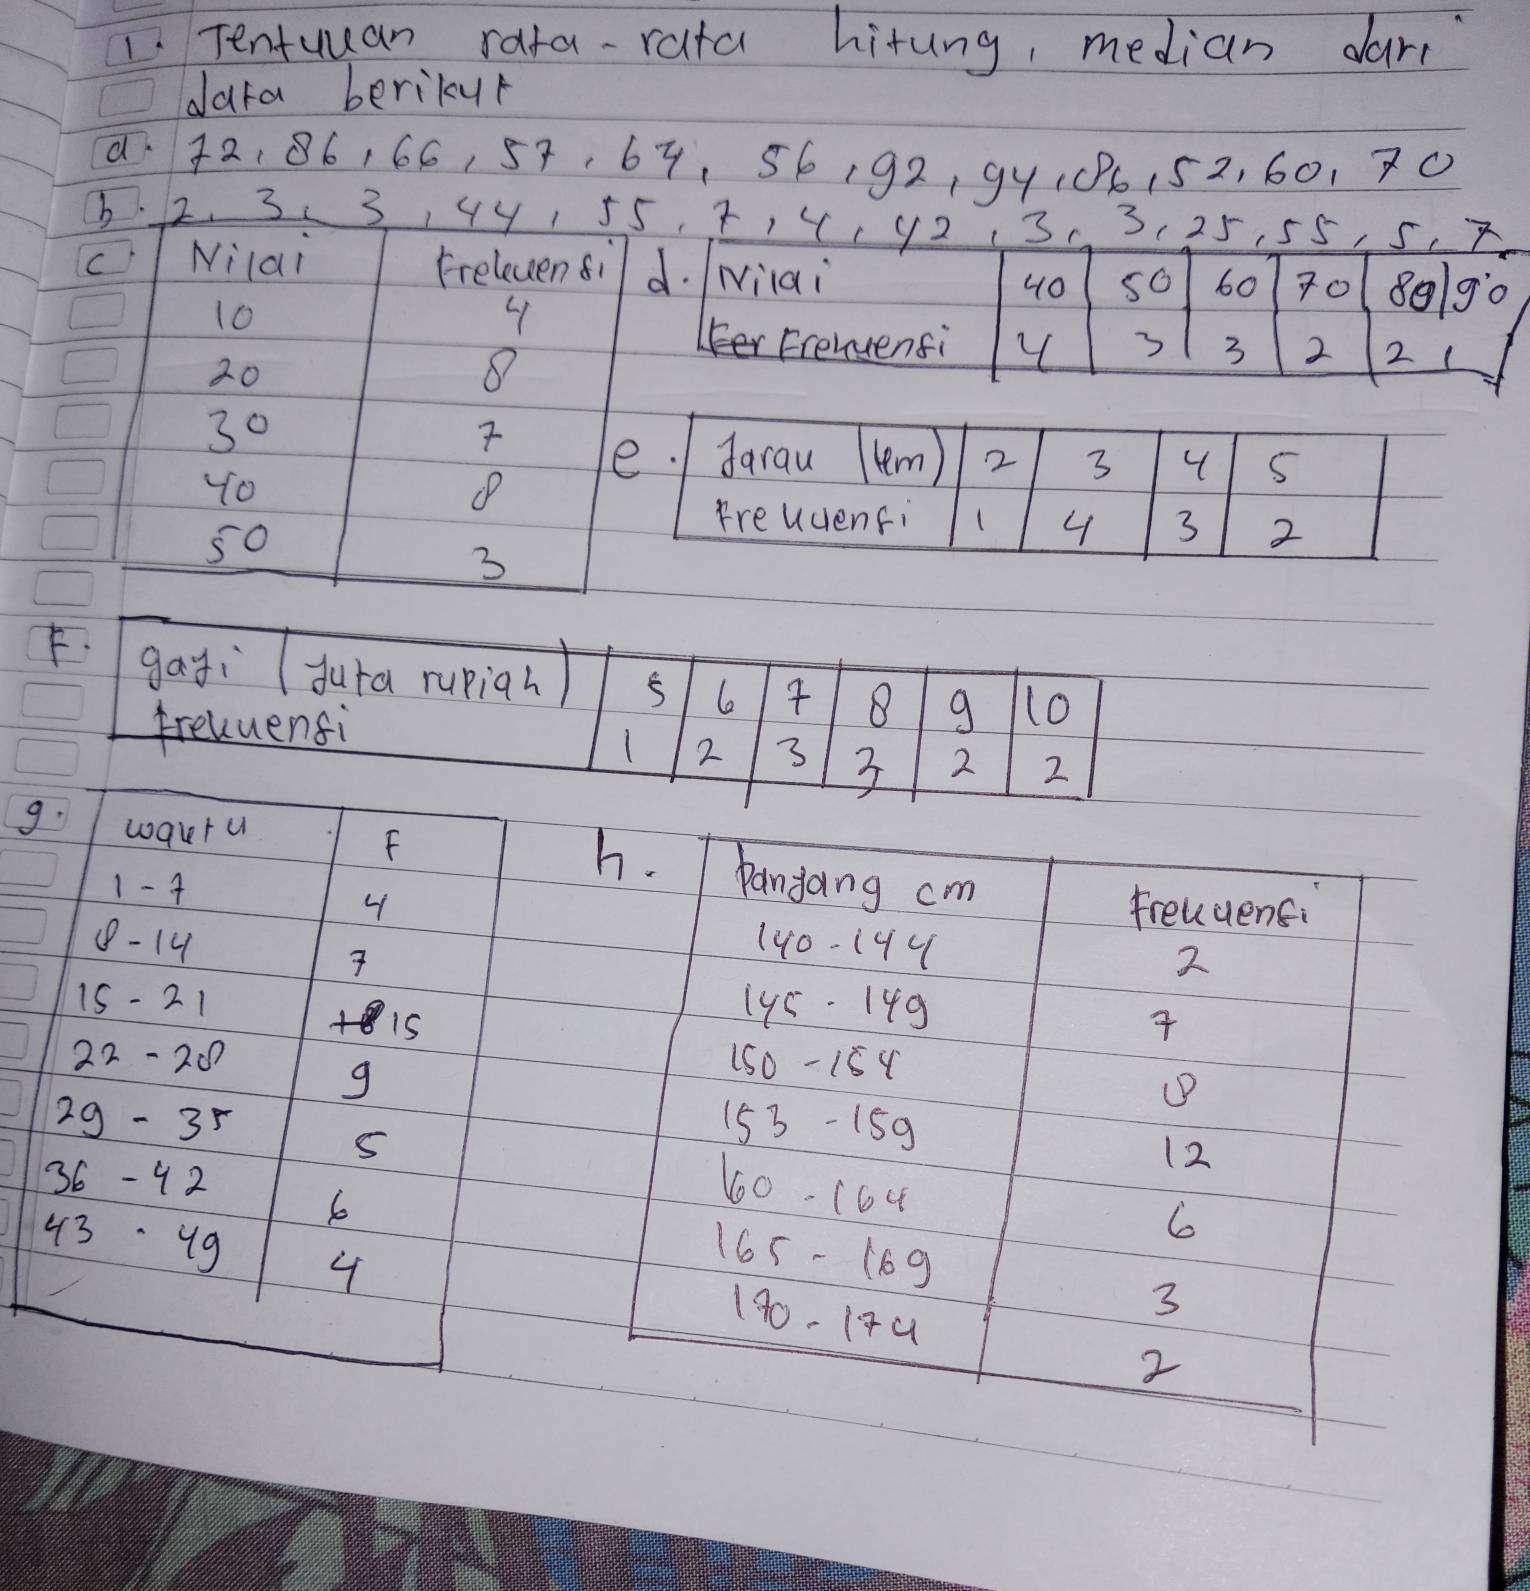 1. Tentukan rata-rata hitung, median dari
data berikut
a. 72, 86, 66, 57, 64, 56, 92, 94, 86, 52, 60, 70
b. 2, 3, 3, 44, 55, 7, 4, 42, 3, 3, 25, 55, 5, 7
c. Nilai Frekuensi
10 4
20 8
30 7
40 8
50 3
d. Nilai 40 50 60 70 80 90
Frekuensi 4 3 3 2 2 1
e. Jarak (km) 2 3 4 5
Frekuensi 1 4 3 2
F. gaji (Juta rupiah) 5 6 7 8 9 10
Frekuensi 1 2 3 3 2 2
g. waktu F
1-7 4
8-14 7
15-21 15
22-28 9
29-35 5
36-42 6
43-49 4
h. Panjang cm Frekuensi
140-144 2
145-149 7
150-154 8
153-159 12
160-164 6
165-169 3
170-174 2